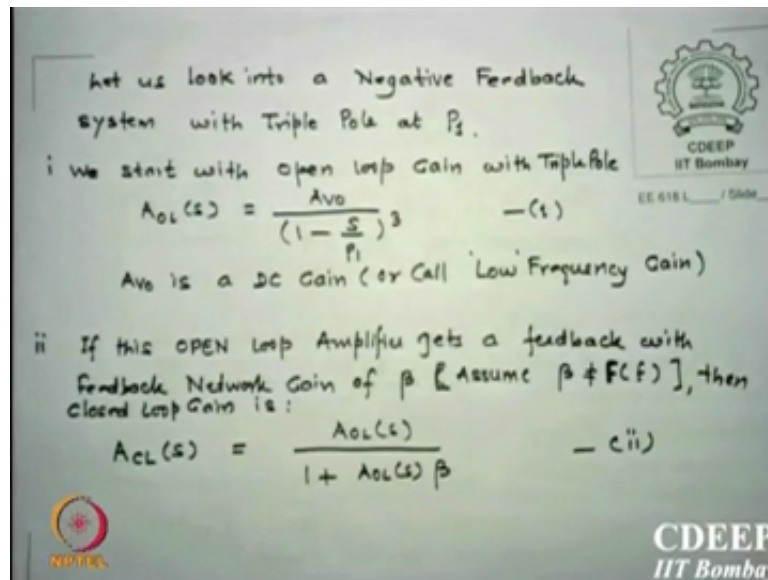 Let us look into a Negative Feedback
system with Triple Pole at P1.
i We start with open loop Gain with Triple Pole
AOL(s) = AVO / (1 - S/P1)^3 —(i)
AVO is a DC Gain (or Call 'Low' Frequency Gain)
ii If this OPEN Loop Amplifier gets a feedback with
Feedback Network Gain of β [Assume β ≠ F(f)], then
Closed Loop Gain is:
ACL(s) = AOL(s) / 1 + AOL(s) β — (ii)
CDEEP
IIT Bombay
EE 618 L___ / Slide__
NPTEL
CDEEP
IIT Bombay